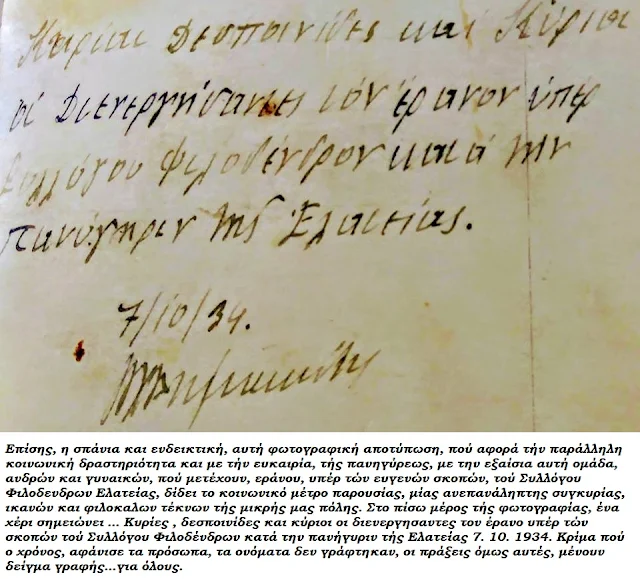 Κυρίαι Δεσποινίδες και Κύριοι
οἱ Διενεργήσαντες τόν ἔρανον ὑπέρ
Συλλόγου Φιλοδένδρον κατά την
πανύγηριν της Ἐλατείας.
7/10/34.
Επίσης, η σπάνια και ενδεικτική, αυτή φωτογραφική αποτύπωση, πού αφορά τήν παράλληλη
κοινωνική δραστηριότητα και με τήν ευκαιρία, τής πανηγύρεως, με την εξαίσια αυτή ομάδα,
ανδρών και γυναικών, πού μετέχουν, εράνου, υπέρ τών ευγενών σκοπών, τού Συλλόγου
Φιλοδενδρων Ελατείας, δίδει το κοινωνικό μέτρο παρουσίας, μίας ανεπανάληπτης συγκυρίας,
ικανών και φιλοκαλων τέκνων τής μικρής μας πόλης. Στο πίσω μέρος τής φωτογραφίας, ένα
χέρι σημειώνει ... Κυρίες , δεσποινίδες και κύριοι οι διενεργησαντες τον έρανο υπέρ τών
σκοπών τού Συλλόγου Φιλοδένδρων κατά την πανήγυριν τής Ελατείας 7. 10. 1934. Κρίμα πού
ο χρόνος, αφάνισε τα πρόσωπα, τα ονόματα δεν γράφτηκαν, οι πράξεις όμως αυτές, μένουν
δείγμα γραφής...για όλους.